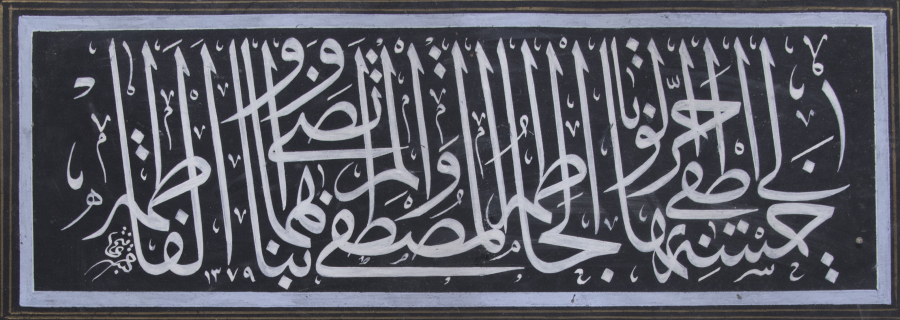 لي خمسة اطفي بها حر الوبا الحاطمة المصطفى والمرتضى وابناهما والفاطمة ١٣٧٩